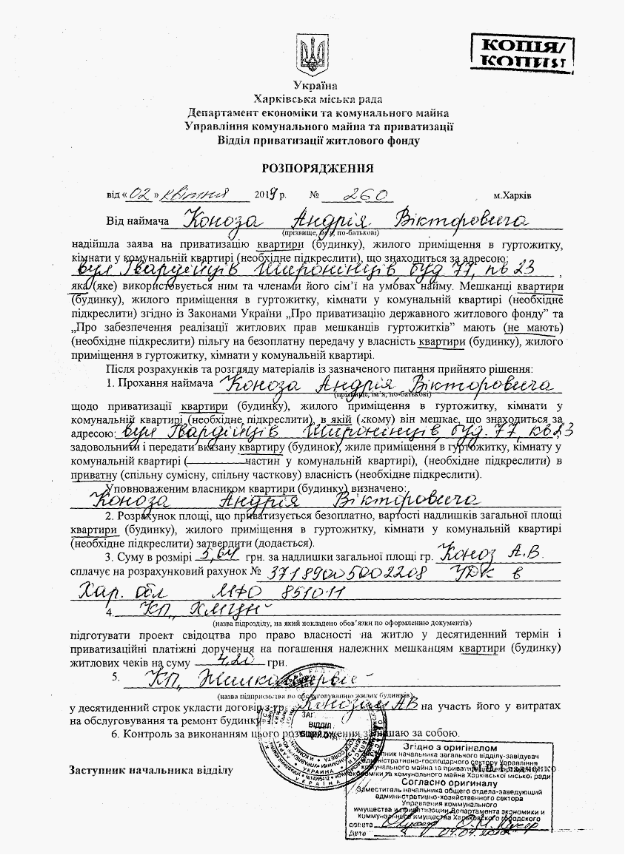 КОПІЯ/
КОПИЯ
Україна
Харківська міська рада
Департамент економіки та комунального майна
Управління комунального майна та приватизації
Відділ приватизації житлового фонду
РОЗПОРЯДЖЕННЯ
від «02» квітня 2019 р. № 260 м.Харків
Від наймача Коноза Андрія Вікторовича
(прізвище, ім'я, по-батькові)
надійшла заява на приватизацію квартири (будинку), жилого приміщення в гуртожитку,
кімнати у комунальній квартирі (необхідне підкреслити), що знаходиться за адресою:
вул Гвардійців Широнінців буд 77, кв 23,
яка (яке) використовується ним та членами його сім'ї на умовах найму. Мешканці квартири
(будинку), жилого приміщення в гуртожитку, кімнати у комунальній квартирі (необхідне
підкреслити) згідно із Законами України „Про приватизацію державного житлового фонду" та
„Про забезпечення реалізації житлових прав мешканців гуртожитків" мають (не мають)
(необхідне підкреслити) пільгу на безоплатну передачу у власність квартири (будинку), жилого
приміщення в гуртожитку, кімнати у комунальній квартирі.
Після розрахунків та розгляду матеріалів із зазначеного питання прийнято рішення:
1. Прохання наймача Коноза Андрія Вікторовича
(прізвище, ім'я, по-батькові)
щодо приватизації квартири (будинку), жилого приміщення в гуртожитку, кімнати у
комунальній квартирі (необхідне підкреслити), в якій (якому) він мешкає, що знаходиться за
адресою: вул Гвардійців Широнінців буд. 77, кв 23
задовольнити і передати вказану квартиру (будинок), жиле приміщення в гуртожитку, кімнату у
комунальній квартирі ( частин у комунальній квартирі), (необхідне підкреслити) в
приватну (спільну сумісну, спільну часткову) власність (необхідне підкреслити).
Уповноваженим власником квартири (будинку) визначено:
Коноза Андрія Вікторовича
2. Розрахунок площі, що приватизується безоплатно, вартості надлишків загальної площі
квартири (будинку), жилого приміщення в гуртожитку, кімнати у комунальній квартирі
(необхідне підкреслити) затвердити (додається).
3. Суму в розмірі 5,64 грн. за надлишки загальної площі гр. Коноз А.В.
сплачує на розрахунковий рахунок № 37189005002208 УДК в
Хар. обл МФО 851011
4. КП „ХМЦН"
(назва підрозділу, на який покладено обов'язки по оформленню документів)
підготувати проект свідоцтва про право власності на житло у десятиденний термін і
приватизаційні платіжні доручення на погашення належних мешканцям квартири (будинку)
житлових чеків на суму 4,20 грн.
5. КП „Жилкомсервіс"
(назва підприємства по обслуговуванню жилих будинків)
у десятиденний строк укласти договір з гр. Конозом АВ на участь його у витратах
на обслуговування та ремонт будинку
6. Контроль за виконанням цього розпорядження залишаю за собою.
Заступник начальника відділу
ЗАГ.
ВІДДІЛ
УКРАЇНА
Згідно з оригіналом
Заступник начальника загального відділу-завідувач
адміністративно-господарським сектором Управління
комунального майна та приватизації Департаменту
економіки та комунального майна Харківської міської ради
Согласно оригиналу
Заместитель начальника общего отдела-заведующий
административно-хозяйственного сектора
Управления коммунального
имущества и приватизации Департамента экономики и
коммунального имущества Харьковского городского
совета
Дата